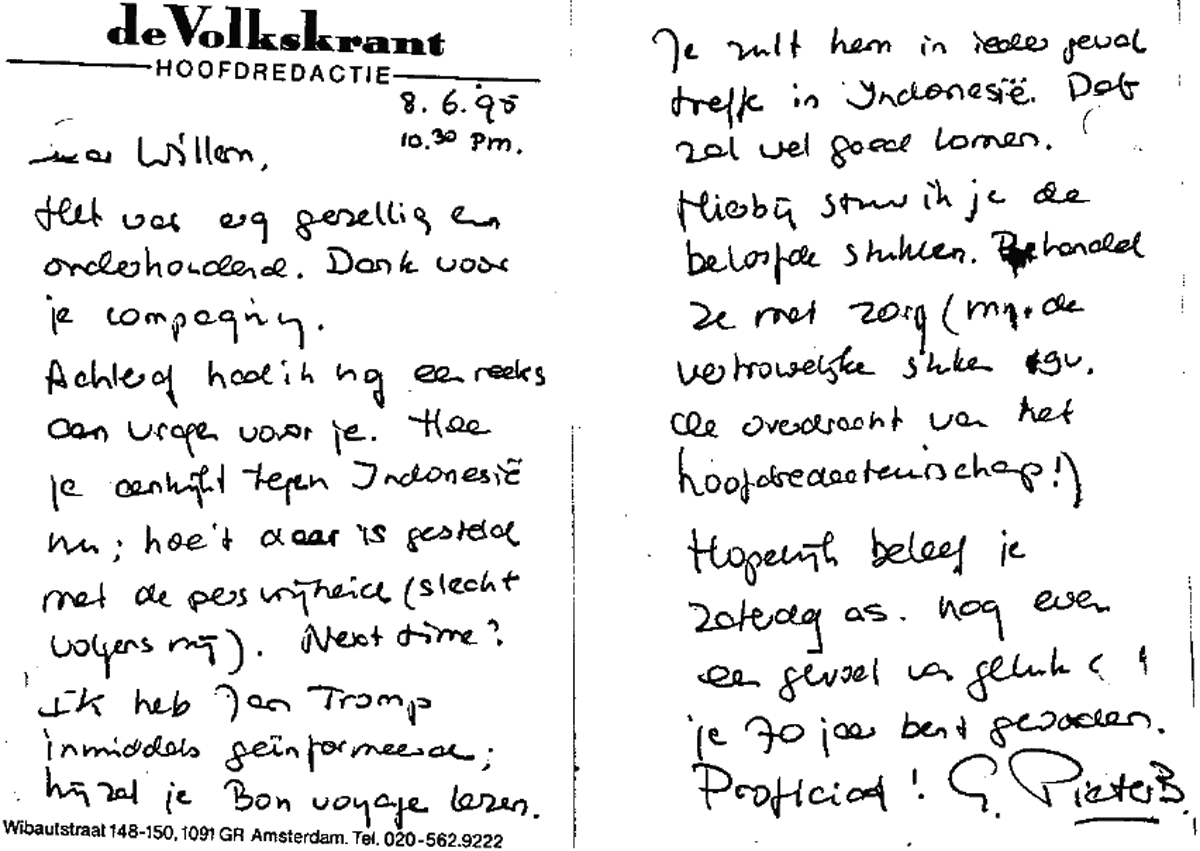 de Volkskrant
HOOFDREDACTIE
8.6.95
10.30 pm.
Willem,
Het was erg gezellig en
onderhoudend. Dank voor
je compagny.
Achteraf had ik nog een reeks
aan vragen voor je. Hoe
je aankijkt tegen Indonesië
nu; hoe't daar is gesteld
met de persvrijheid (slecht
volgens mij). Next time?
Ik heb Jan Tromp
inmiddels geïnformeerd;
hij zal je Bon voyage lezen.
Wibautstraat 148-150, 1091 GR Amsterdam. Tel. 020-562.9222
Je zult hem in ieder geval
treffe in Indonesië. Dat
zal wel goed komen.
Hierbij stuur ik je de
beloofde stukken. Behandel
ze met zorg (m.n. de
vertrouwelijke stukken tgv.
de overdracht van het
hoofdredacteurschap!)
Hopelijk beleef je
zaterdag as. nog even
een gevoel van geluk
je 70 jaar bent geworden.
Proficiat! G. Pieter B.